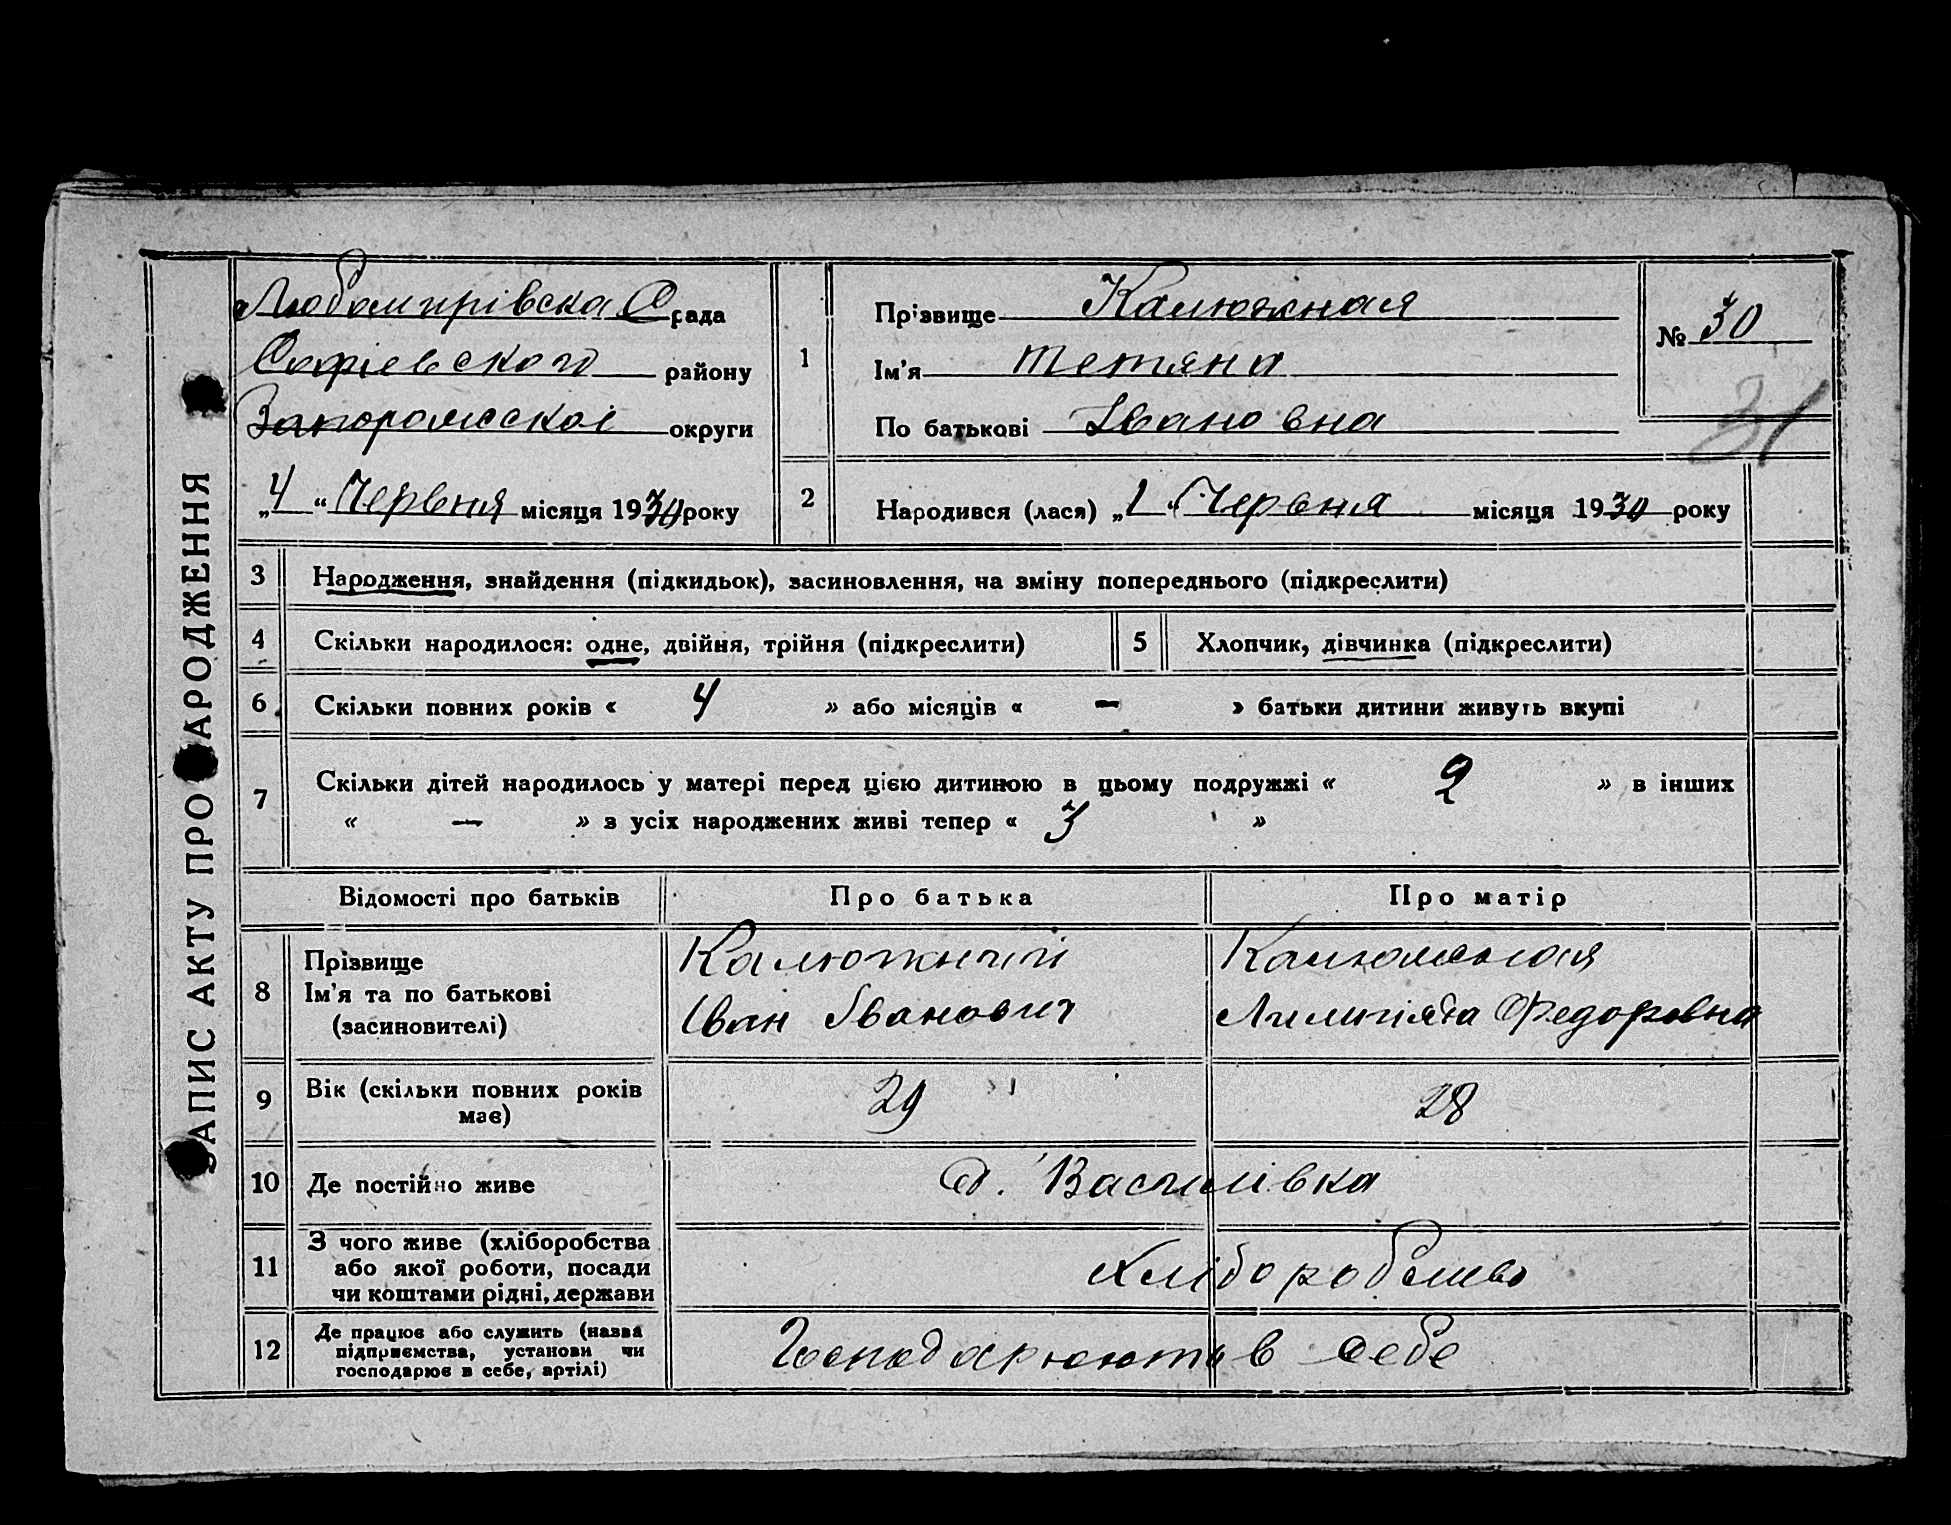 ЗАПИС АКТУ ПРО НАРОДЖЕННЯ
Любомирівска С рада
Софіевского району
Запорожскоі округи
„4“ Червня місяця 1930 року
1
Прізвище Калюжная
Ім'я Тетяна
По батькові Івановна
№ 30
31
2 Народився (лася) „1“ Червня місяця 1930 року
3 Народження, знайдення (підкидьок), засиновлення, на зміну попереднього (підкреслити)
4 Скільки народилося: одне, двійня, трійня (підкреслити)
5 Хлопчик, дівчинка (підкреслити)
6 Скільки повних років « 4 » або місяців « — » батьки дитини живуть вкупі
7 Скільки дітей народилось у матері перед цією дитиною в цьому подружжі « 2 » в інших
« — » з усіх народжених живі тепер « 3 »
Відомості про батьків Про батька Про матір
8 Прізвище Калюжний Калюжная
Ім'я та по батькові Іван Іванович Федоровна
(засиновителі)
9 Вік (скільки повних років має) 29 28
10 Де постійно живе с. Василівка
11 З чого живе (хліборобства
або якої роботи, посади
чи коштами рідні, держави
хліборобство
12 Де працює або служить (назва
підприємства, установи чи
господарює в себе, артілі)
Господарюють в себе